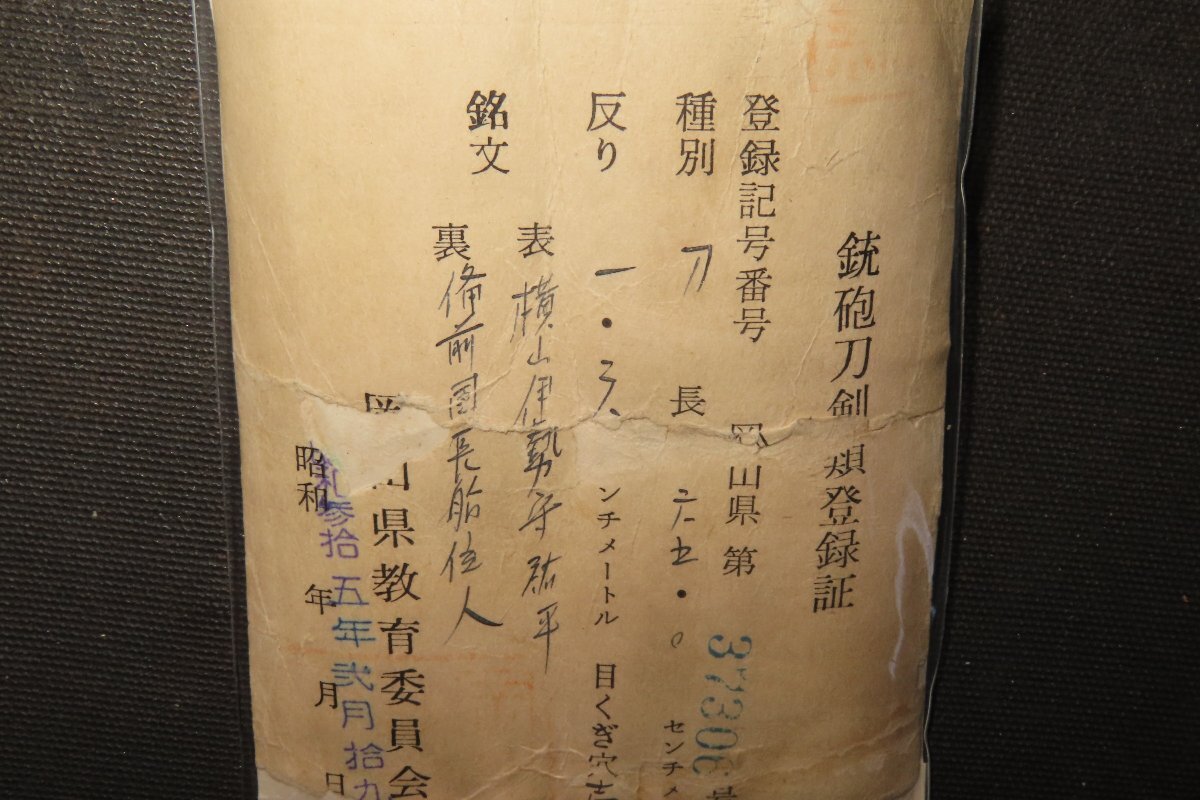 銃砲刀剣類登録証
登録記号番号 岡山県 第 37306号
種別 刀 長 六五・〇 センチメ
反り 一・六 ンチメートル 目くぎ穴
銘文
表 横山伊勢守祐平
裏 備前国長船住人
岡山県教育委員会
昭和 年 月 日
参拾五年弐月拾九